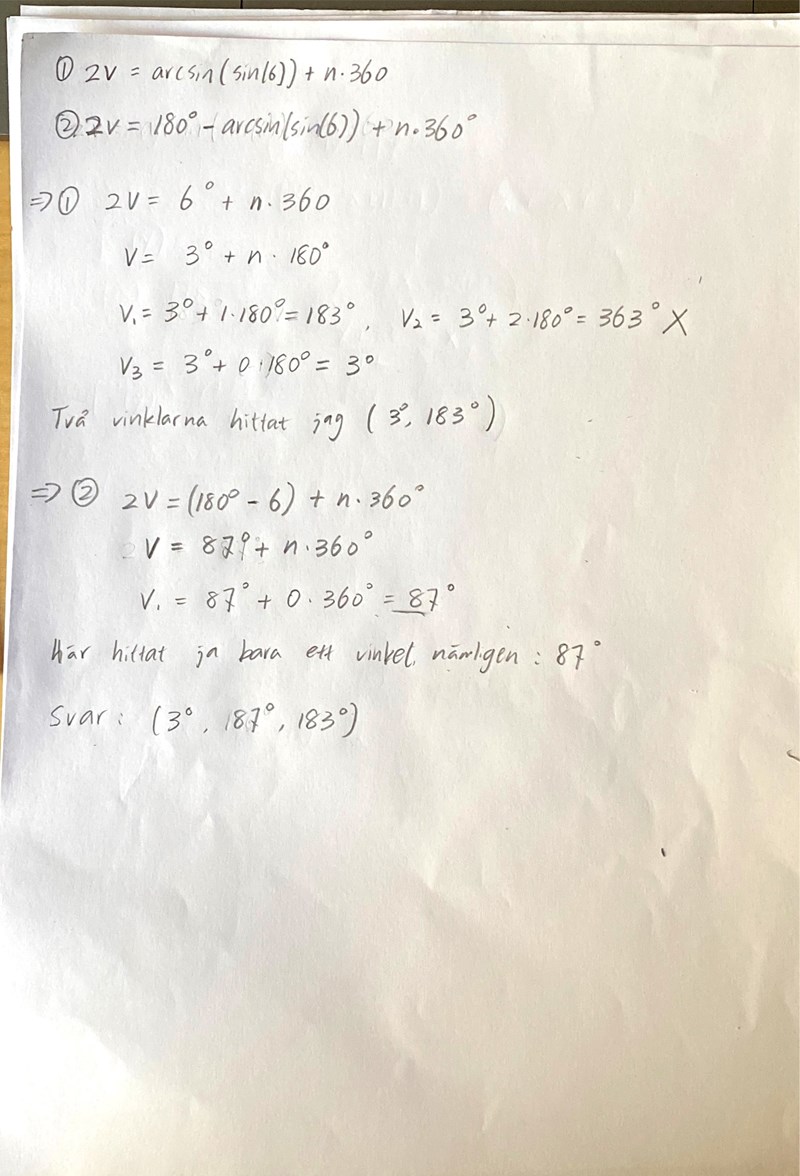 ① 2V = arcsin(sin(6)) + n·360
② 2V = 180° - arcsin(sin(6)) + n·360°
⇒ ① 2V = 6° + n·360
V = 3° + n·180°
V₁ = 3° + 1·180° = 183°, V₂ = 3° + 2·180° = 363° X
V₃ = 3° + 0·180° = 3°
Två vinklarna hittat jag (3°, 183°)
⇒ ② 2V = (180° - 6) + n·360°
V = 87° + n·360°
V₁ = 87° + 0·360° = 87°
Här hittat ja bara ett vinkel, nämligen : 87°
Svar : (3°, 187°, 183°)